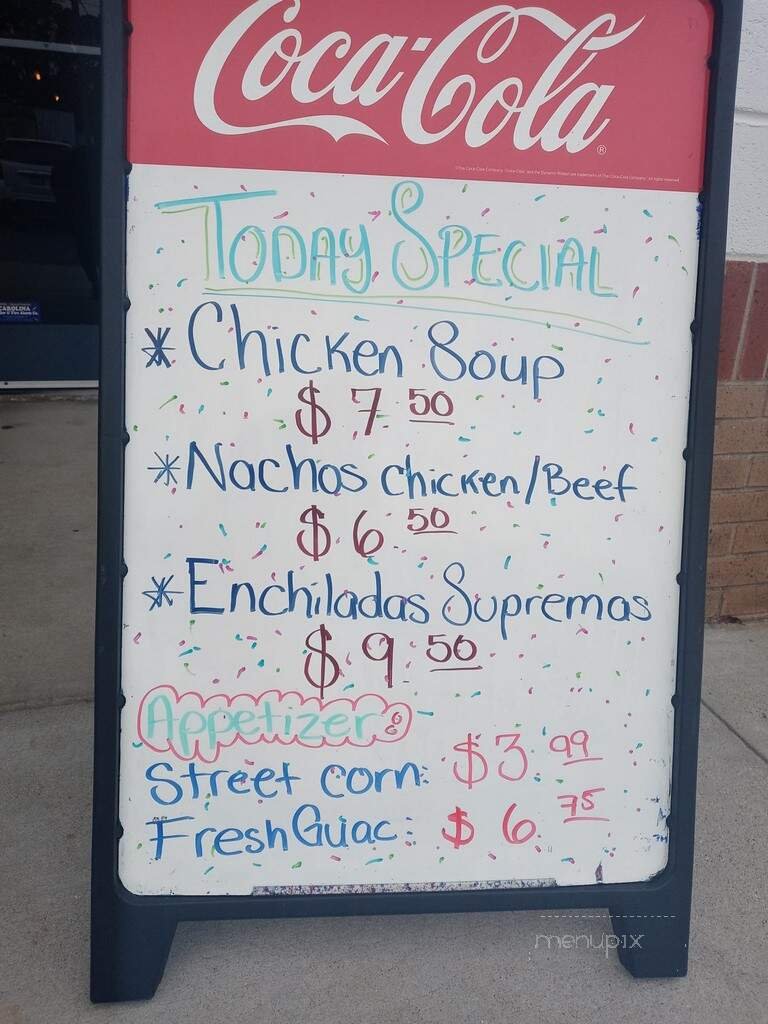 Coca-Cola
®
Today Special
* Chicken Soup
$7.50
* Nachos Chicken/Beef
$6.50
* Enchiladas Supremas
$9.50
Appetizer:
Street corn: $3.99
Fresh Guac: $6.75
CAROLINA
menupix